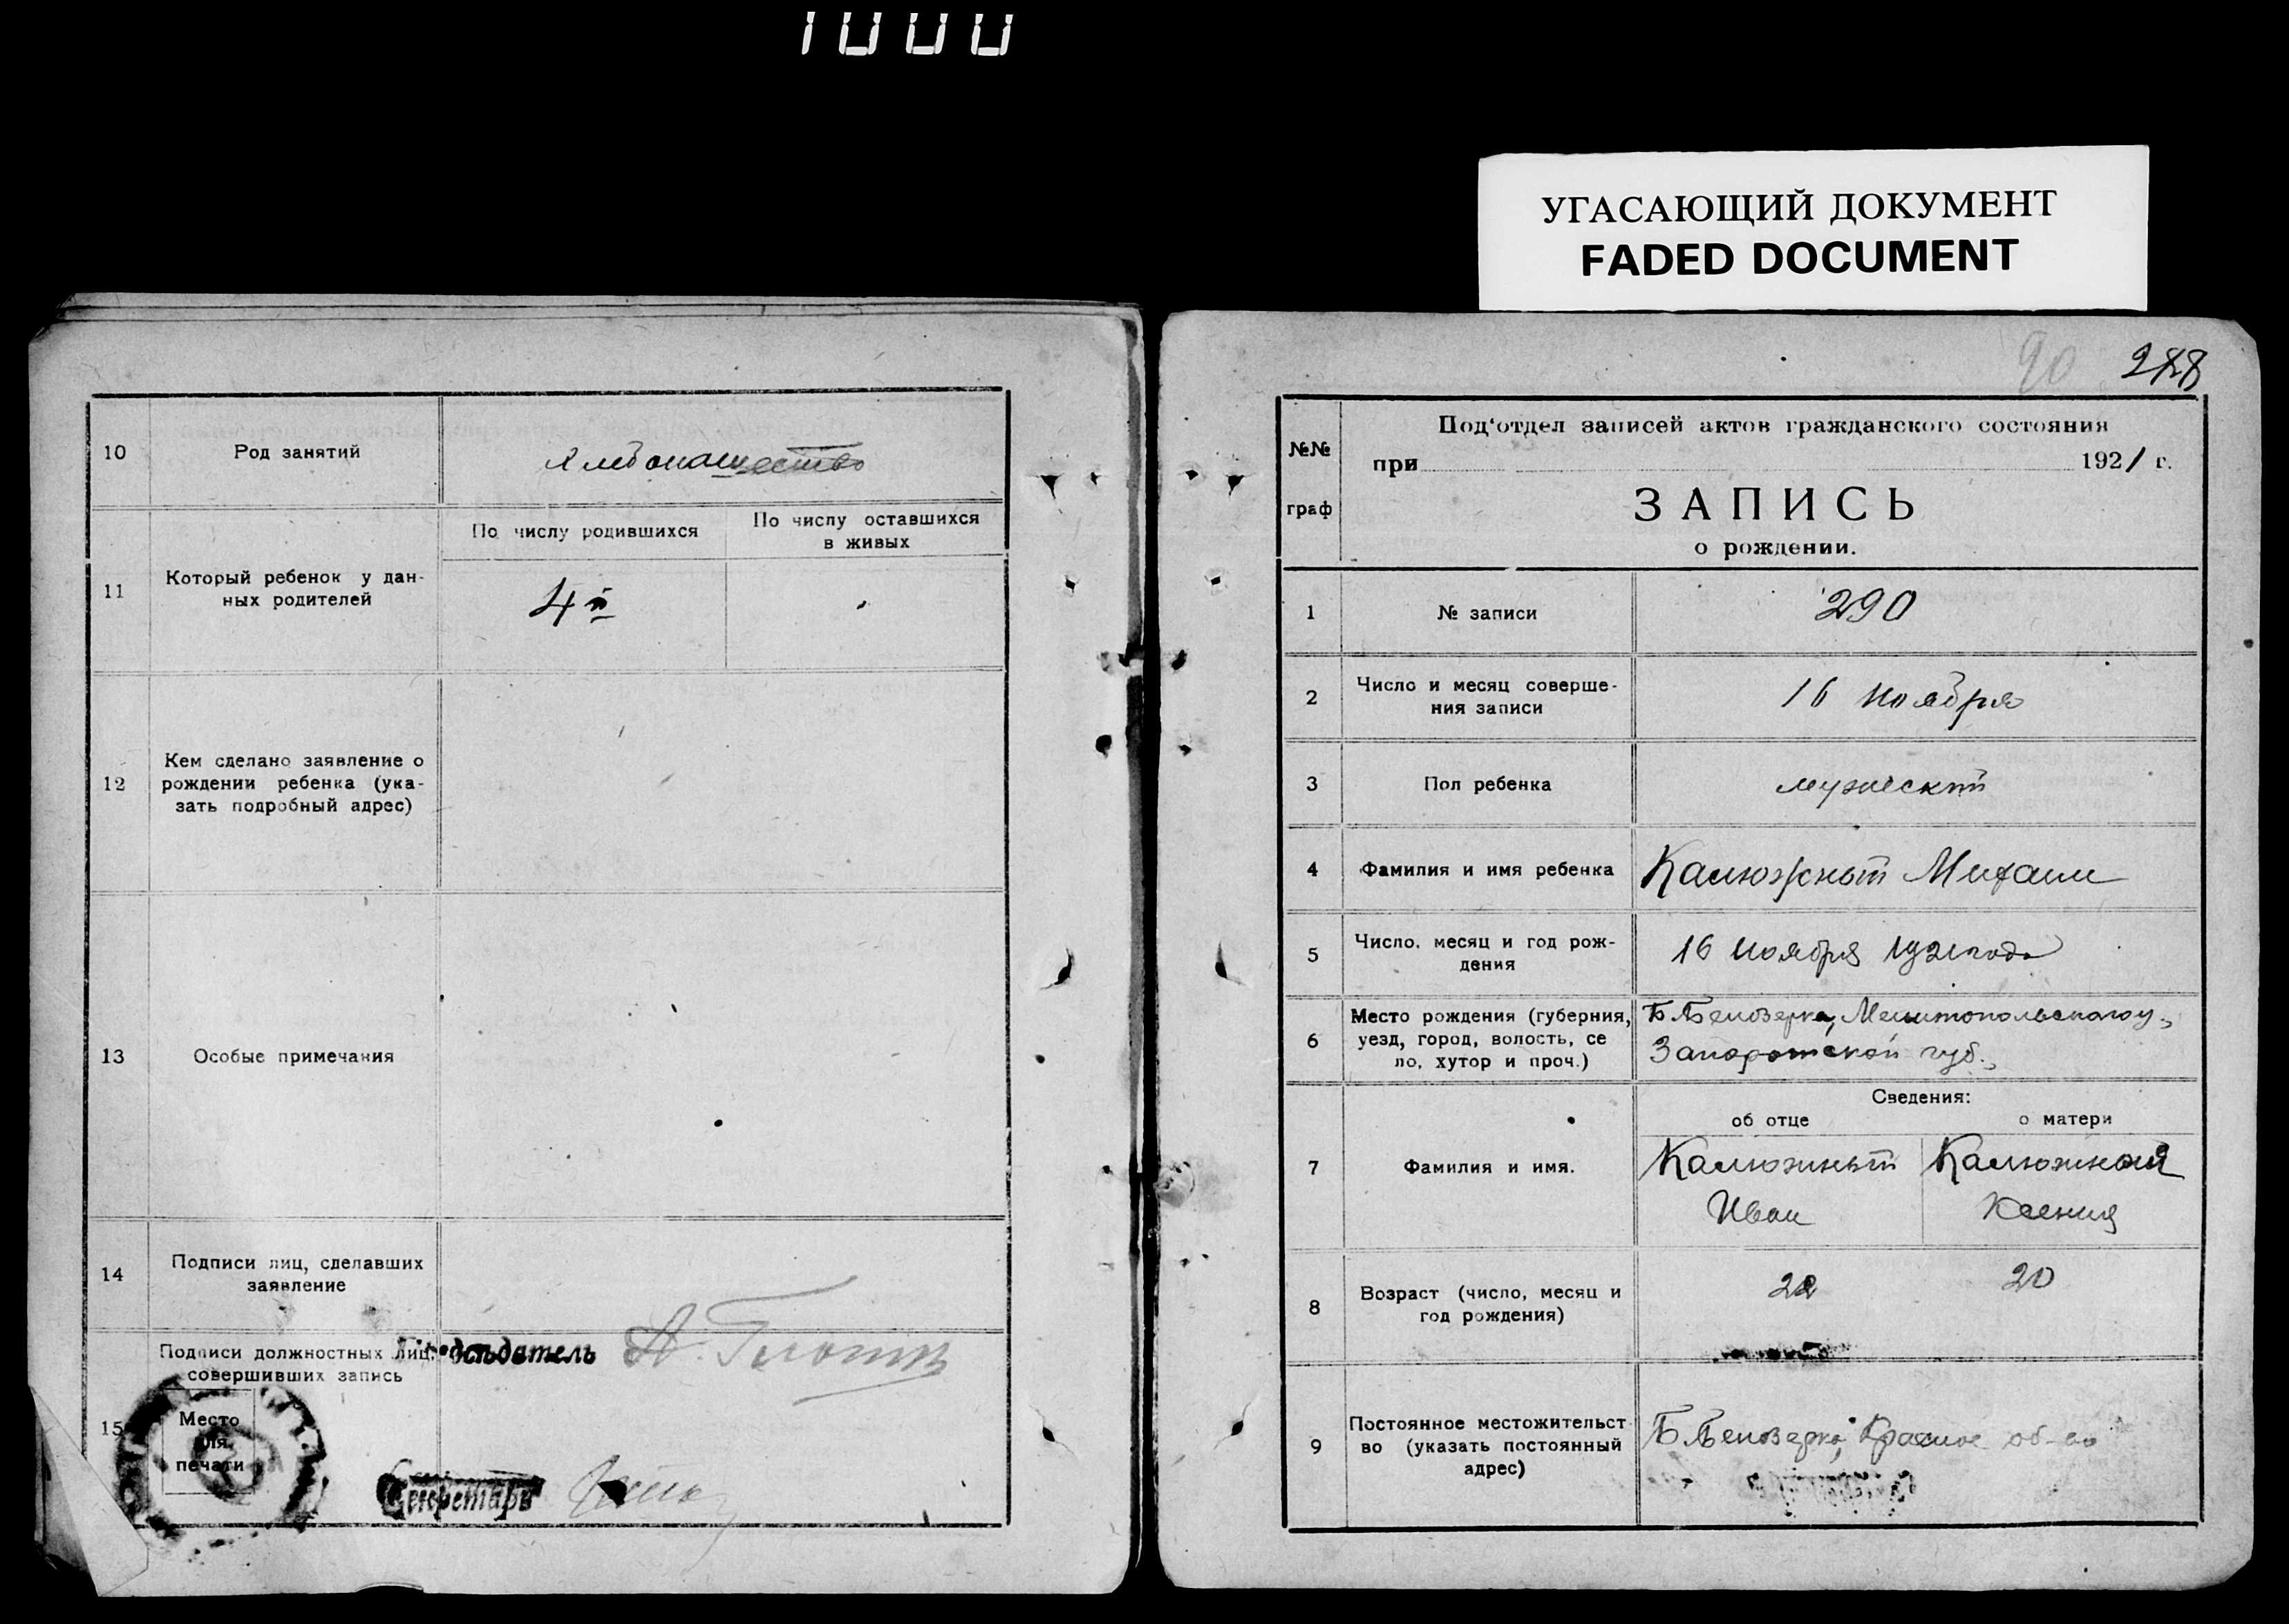 1000
УГАСАЮЩИЙ ДОКУМЕНТ
FADED DOCUMENT
10
Род занятий
Хлебопашество
11
Который ребенок у дан-
ных родителей
По числу родившихся
По числу оставшихся
в живых
4й
12
Кем сделано заявление о
рождении ребенка (ука-
зать подробный адрес)
13
Особые примечания
14
Подписи лиц, сделавших
заявление
15
Подписи должностных лиц,
совершивших запись
Место
для
печати
Председатель
Секретарь
90 288
№№
граф
Под‘отдел записей актов гражданского состояния
при 1921 г.
ЗАПИСЬ
о рождении.
1
№ записи
290
2
Число и месяц соверше-
ния записи
16 ноября
3
Пол ребенка
мужеский
4
Фамилия и имя ребенка
Калюжный Михаил
5
Число, месяц и год рож-
дения
16 ноября 1921 года
6
Место рождения (губерния,
уезд, город, волость, се
ло, хутор и проч.)
Б Белозерка, Мелитопольского у.,
Запорожской губ.,
Сведения:
об отце
о матери
7
Фамилия и имя.
Калюжный
Иван
Калюжная
Ксения
8
Возраст (число, месяц и
год рождения)
22
20
9
Постоянное местожительст
во (указать постоянный
адрес)
Б Белозерка, Красное об-во